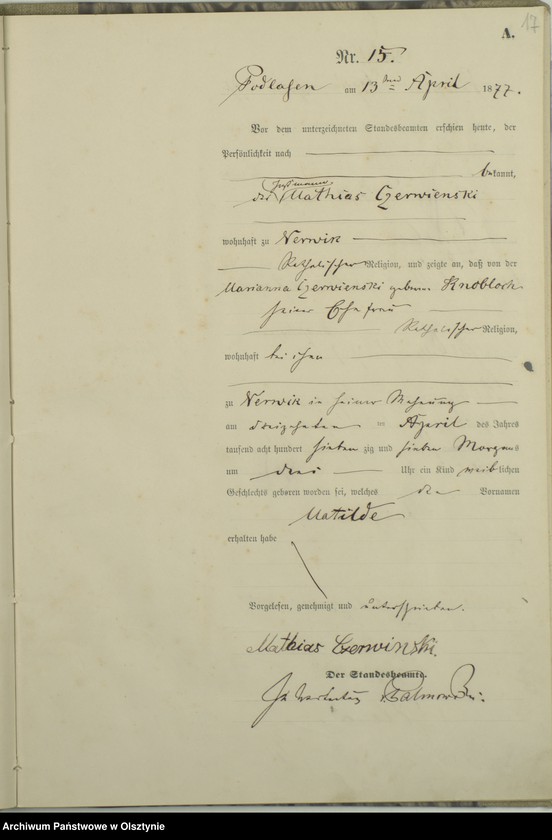 17
A.
Nr. 15.
Podlassen am 13ten April 1877.
Vor dem unterzeichneten Standesbeamten erschien heute, der
Persönlichkeit nach
bekannt,
der Mathias Czerwienski
wohnhaft zu Nerwik
Katholischer Religion, und zeigte an, daß von der
Marianna Czerwienski geborne Knobloch
seiner Ehefrau
Katholischer Religion,
wohnhaft bei ihm
zu Nerwik in seiner Wohnung
am dreizehnten April des Jahres
tausend acht hundert sieben zig und sieben Morgens
um drei Uhr ein Kind weiblichen
Geschlechts geboren worden sei, welches den Vornamen
Matilde
erhalten habe
Vorgelesen, genehmigt und unterschrieben.
Mathias Czerwinski.
Der Standesbeamte.
In Vertretung
Archiwum Państwowe w Olsztynie